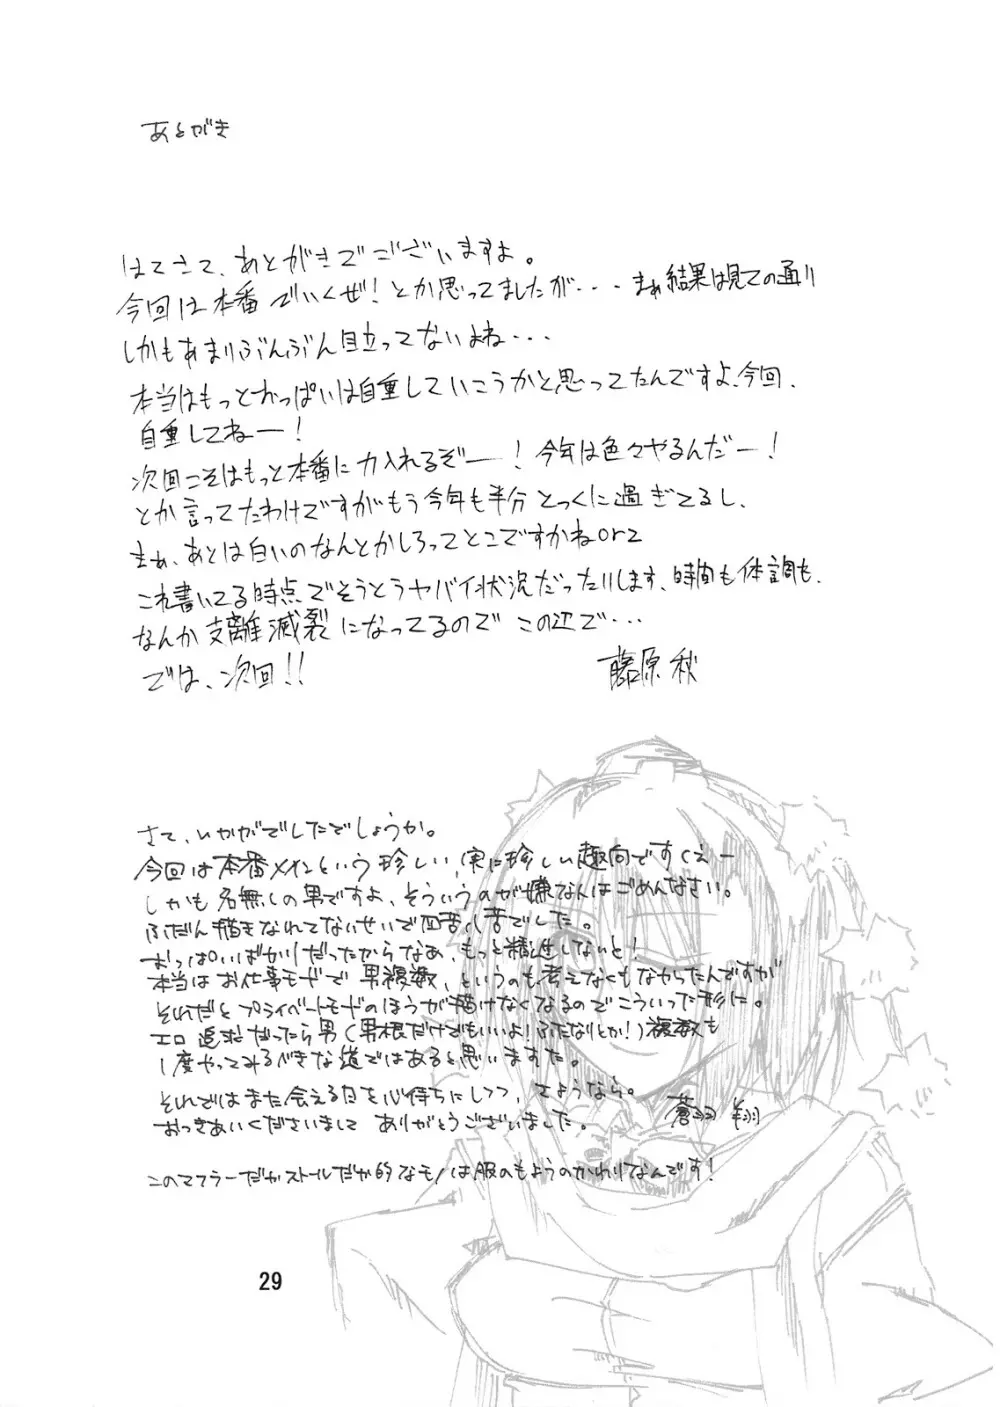 あとがき
はてさて、あとがきでございますよ。
今回は本番でいくぜ！とか思ってましたが・・・まぁ結果は見ての通り
しかもあまりぶんぶん目立ってないよね・・・
本当はもっとおっぱいは自重していこうかと思ってたんですよ、今回、
自重してねー！
次回こそはもっと本番に力入れるぞー！今年は色々やるんだー！
とか言ってたわけですがもう今年も半分とっくに過ぎてるし、
まぁ、あとは白いのなんとかしろってとこですかねorz
これ書いてる時点でそうとうヤバイ状況だったりします、時間も体調も、
なんか支離滅裂になってるのでこの辺で・・・
では、次回！！
藤原秋
さて、いかがでしたでしょうか。
今回は本番メインという珍しい、実に珍しい趣向ですくえー
しかも名無しの男ですよ、そういうのが嫌な人はごめんなさい。
ふだん描きなれてないせいで四苦八苦でした。
おっぱいばかりだったからなぁ、もっと精進しないと！
本当はお仕事モードで男複数、というのも考えなくもなかったんですが
それだとプライベートモードのほうが描けなくなるのでこういった形に。
エロ追求だったら男（男根だけでもいいよ！ふたなりとか！）複数も
1度やってみるべきな道ではあると思いますた。
それではまた会える日を心待ちにしつつ、さようなら。
おつきあいくださいまして ありがとうございました。
蒼羽 翔
このマフラーだかストールだか的なモノは服のもようのかわりなんです！
29